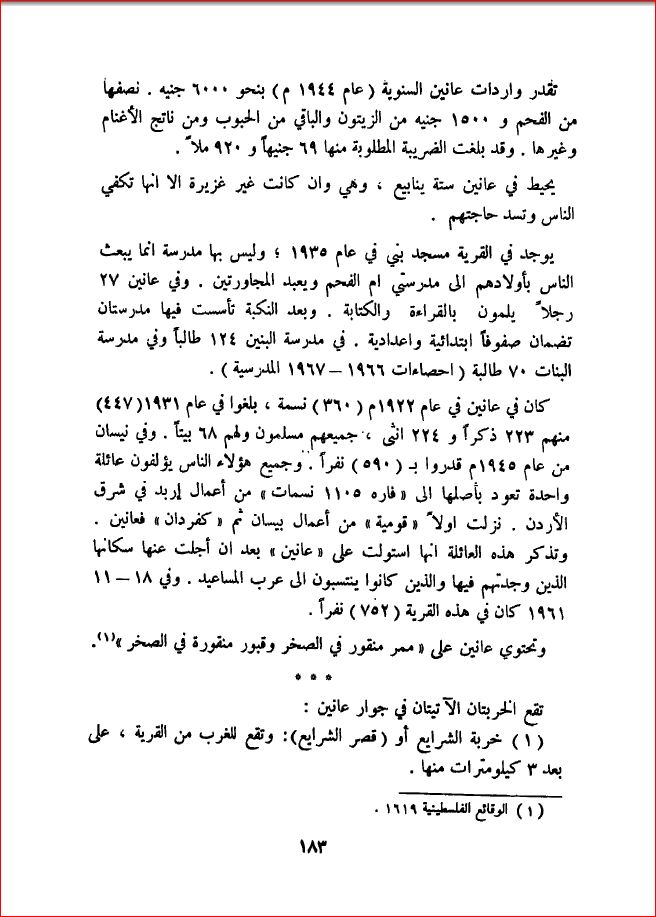 تقدر واردات عانين السنوية ( عام ١٩٤٤ م ) بنحو ٦٠٠٠ جنيه . نصفها
من الفحم و ١٥٠٠ جنيه من الزيتون والباقي من الحبوب ومن ناتج الأغنام
وغيرها . وقد بلغت الضريبة المطلوبة منها ٦٩ جنيهاً و ٩٢٠ ملاً .
يحيط في عانين ستة ينابيع ، وهي وان كانت غير غزيرة الا انها تكفي
الناس وتسد حاجتهم .
يوجد في القرية مسجد بني في عام ١٩٣٥ ؛ وليس بها مدرسة انما يبعث
الناس بأولادهم الى مدرستي ام الفحم ويعبد المجاورتين . وفي عانين ٢٧
رجلاً يلمون بالقراءة والكتابة . وبعد النكبة تأسست فيها مدرستان
تضمان صفوفاً ابتدائية واعدادية . في مدرسة البنين ١٢٤ طالباً وفي مدرسة
البنات ٧٠ طالبة ( احصاءات ١٩٦٦ – ١٩٦٧ المدرسية ) .
كان في عانين في عام ١٩٢٢م ( ٣٦٠ ) نسمة ، بلغوا في عام ١٩٣١ (٤٤٧)
منهم ٢٢٣ ذكراً و ٢٢٤ انثى ، جميعهم مسلمون ولهم ٦٨ بيتاً . وفي نيسان
من عام ١٩٤٥م قدروا بـ ( ٥٩٠ ) نفراً . وجميع هؤلاء الناس يؤلفون عائلة
واحدة تعود بأصلها الى « فاره ١١٠٥ نسمات » من أعمال إربد في شرق
الأردن . نزلت اولاً « قومية » من أعمال بيسان ثم « كفردان » فعانين .
وتذكر هذه العائلة انها استولت على « عانين » بعد ان أجلت عنها سكانها
الذين وجدتهم فيها والذين كانوا ينتسبون الى عرب المساعيد . وفي ١٨ – ١١
١٩٦١ كان في هذه القرية ( ٧٥٢ ) نفراً .
وتحتوي عانين على « ممر منقور في الصخر وقبور منقورة في الصخر »(١).
* * *
تقع الخربتان الآتيتان في جوار عانين :
( ١ ) خربة الشرايع أو ( قصر الشرايع ): وتقع للغرب من القرية ، على
بعد ٣ كيلومترات منها .
( ١ ) الوقائع الفلسطينية ١٦١٩ .
١٨٣